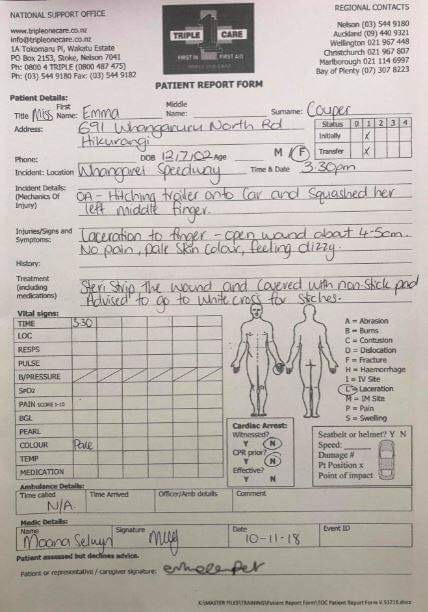 NATIONAL SUPPORT OFFICE
www.tripleonecare.co.nz
info@tripleonecare.co.nz
1A Tokomaru Pl, Wakatu Estate
PO Box 2153, Stoke, Nelson 7041
Ph: 0800 4 TRIPLE (0800 487 475)
Ph: (03) 544 9180 Fax: (03) 544 9182
TRIPLE CARE
FIRST IN FIRST AID
REGIONAL CONTACTS
Nelson (03) 544 9180
Auckland (09) 440 9321
Wellington 021 967 448
Christchurch 021 967 807
Marlborough 021 114 6997
Bay of Plenty (07) 307 8223
PATIENT REPORT FORM
Patient Details:
Title Miss First Name: Emma Middle Name: Surname: Couper
Address: 691 Whangaruru North Rd
Hikurangi
Status 0 1 2 3 4
Initially X
Transfer X
Phone: DOB 12/7/02 Age M F
Incident: Location Whangarei Speedway Time & Date 3:30pm
Incident Details:
(Mechanics Of Injury)
OA - Hitching trailer onto Car and Squashed her
left middle finger.
Injuries/Signs and Symptoms:
Laceration to finger - open wound about 4-5cm.
No pain, pale skin colour, feeling dizzy.
History:
Treatment
(including medications)
Steri Strip the wound and Covered with non-stick pad
Advised to go to White cross for Stiches.
Vital signs:
TIME 3:30
LOC
RESPS
PULSE
B/PRESSURE
SpO2
PAIN SCORE 1-10
BGL
PEARL
COLOUR Pale
TEMP
MEDICATION
A = Abrasion
B = Burns
C = Contusion
D = Dislocation
F = Fracture
H = Haemorrhage
I = IV Site
L = Laceration
M = IM Site
P = Pain
S = Swelling
Cardiac Arrest:
Witnessed?
Y N
CPR prior?
Y N
Effective?
Y N
Seatbelt or helmet? Y N
Speed:
Damage #
Pt Position x
Point of impact
Ambulance Details:
Time called Time Arrived Officer/Amb details Comment
N/A
Medic Details:
Name Signature Date Event ID
Moana Selwyn 10-11-18
Patient assessed but declines advice.
Patient or representative / caregiver signature: